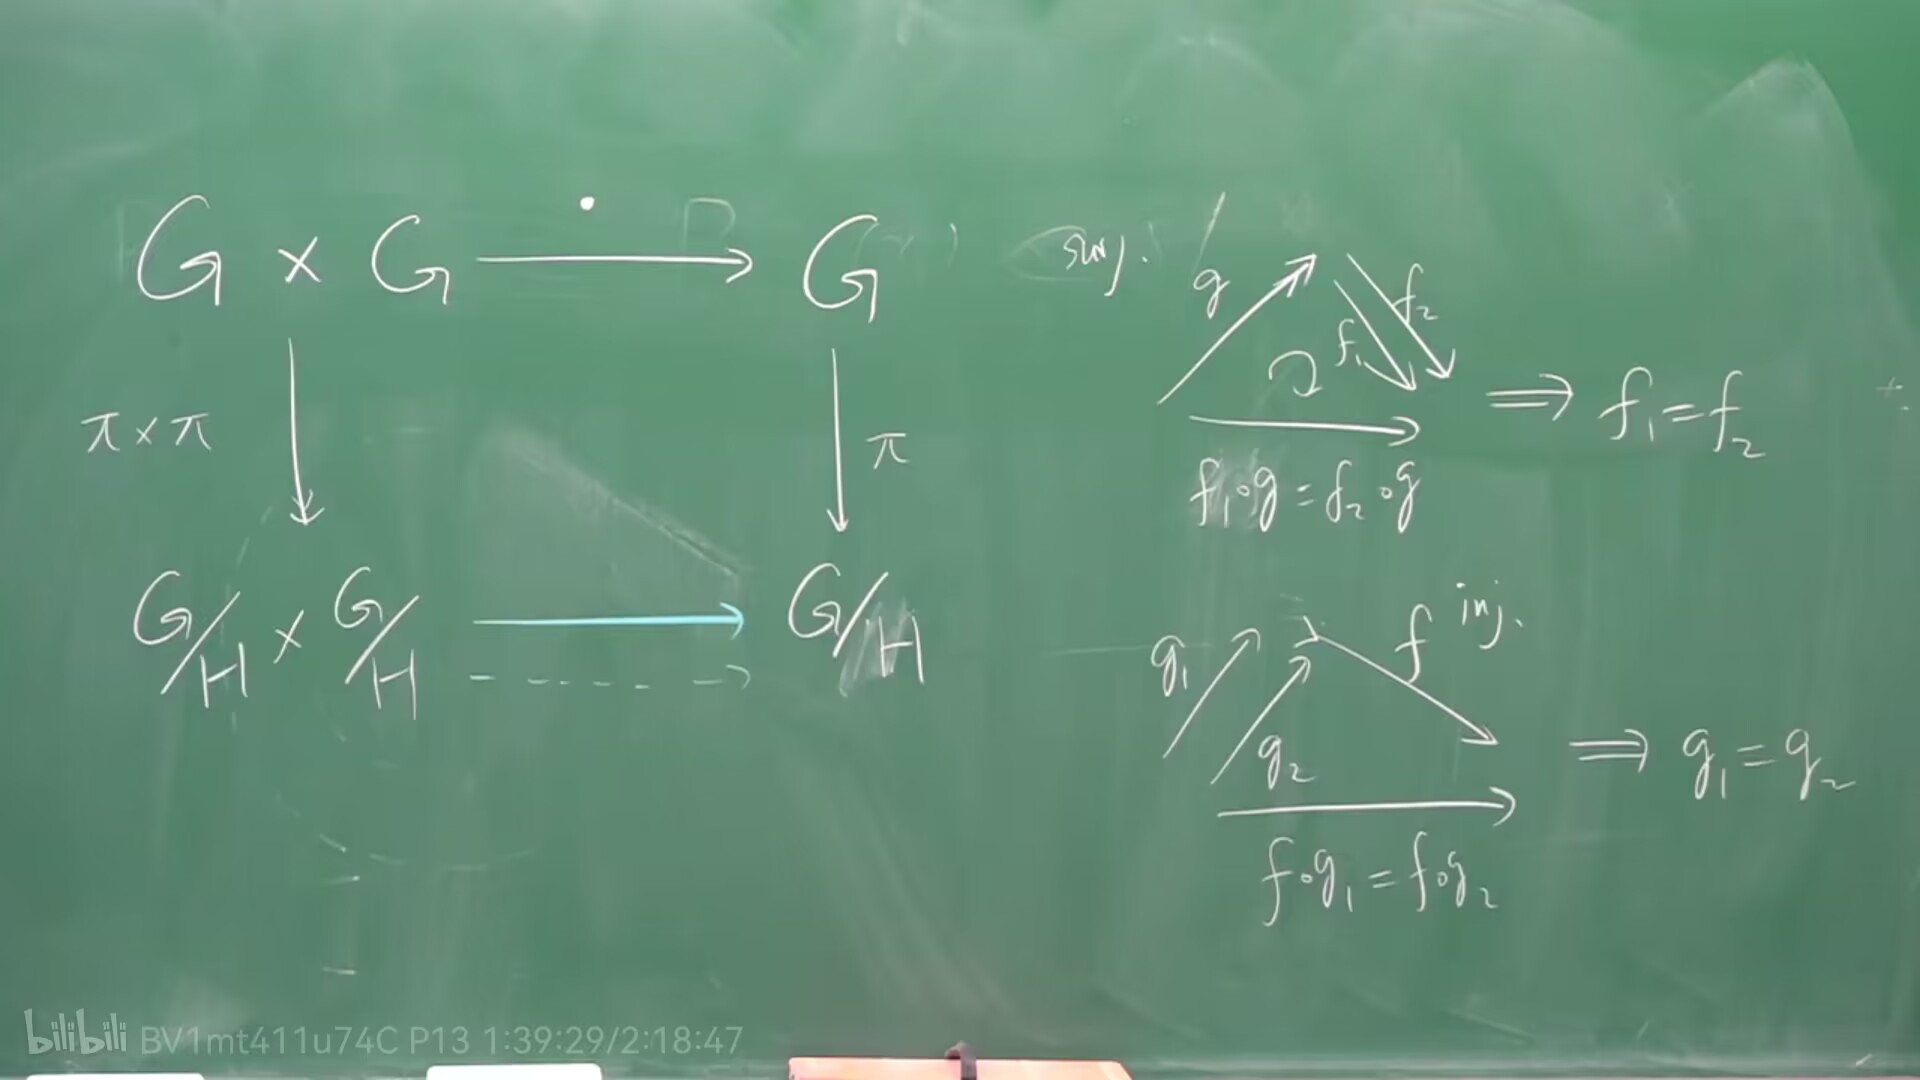 G × G ⟶ G
·
π×π
π
G/H × G/H ⟶ G/H
surj.
g
f₁
f₂
⟹ f₁=f₂
f₁∘g=f₂∘g
g₁
g₂
f inj.
⟹ g₁=g₂
f∘g₁=f∘g₂
bilibili BV1mt411u74C P13 1:39:29/2:18:47